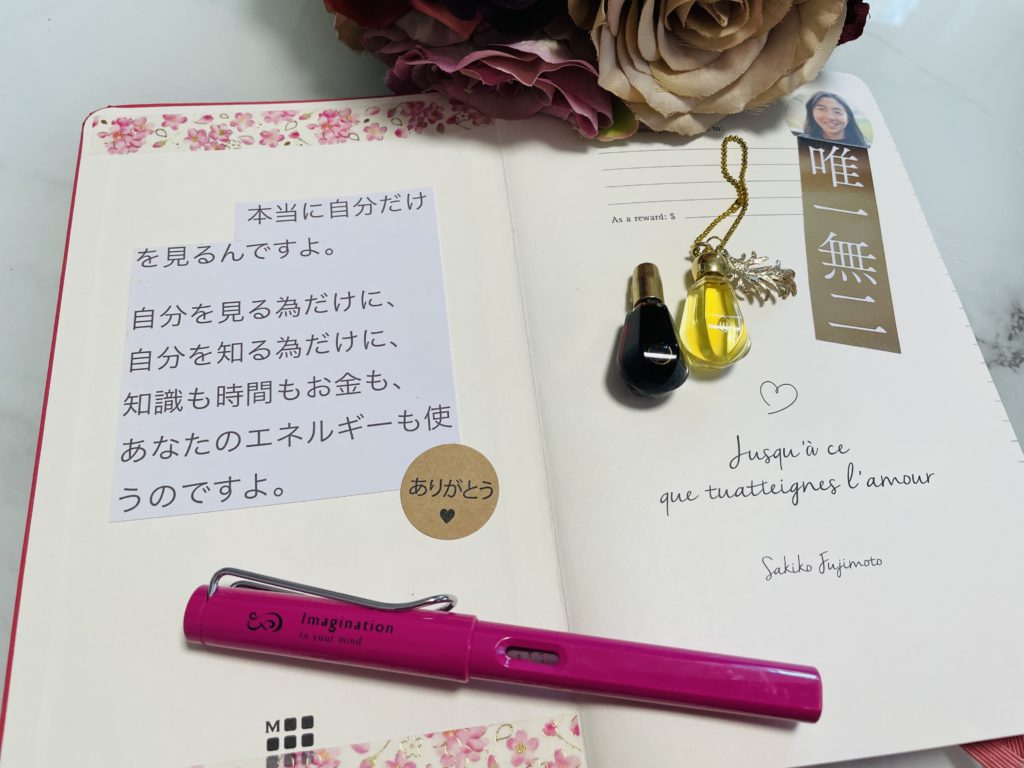 本当に自分だけ
を見るんですよ。
自分を見る為だけに、
自分を知る為だけに、
知識も時間もお金も、
あなたのエネルギーも使
うのですよ。
ありがとう
Imagination
In your mind
M
to:
As a reward: $
唯一無二
Jusqu'à ce
que tuatteignes l'amour
Sakiko Fujimoto